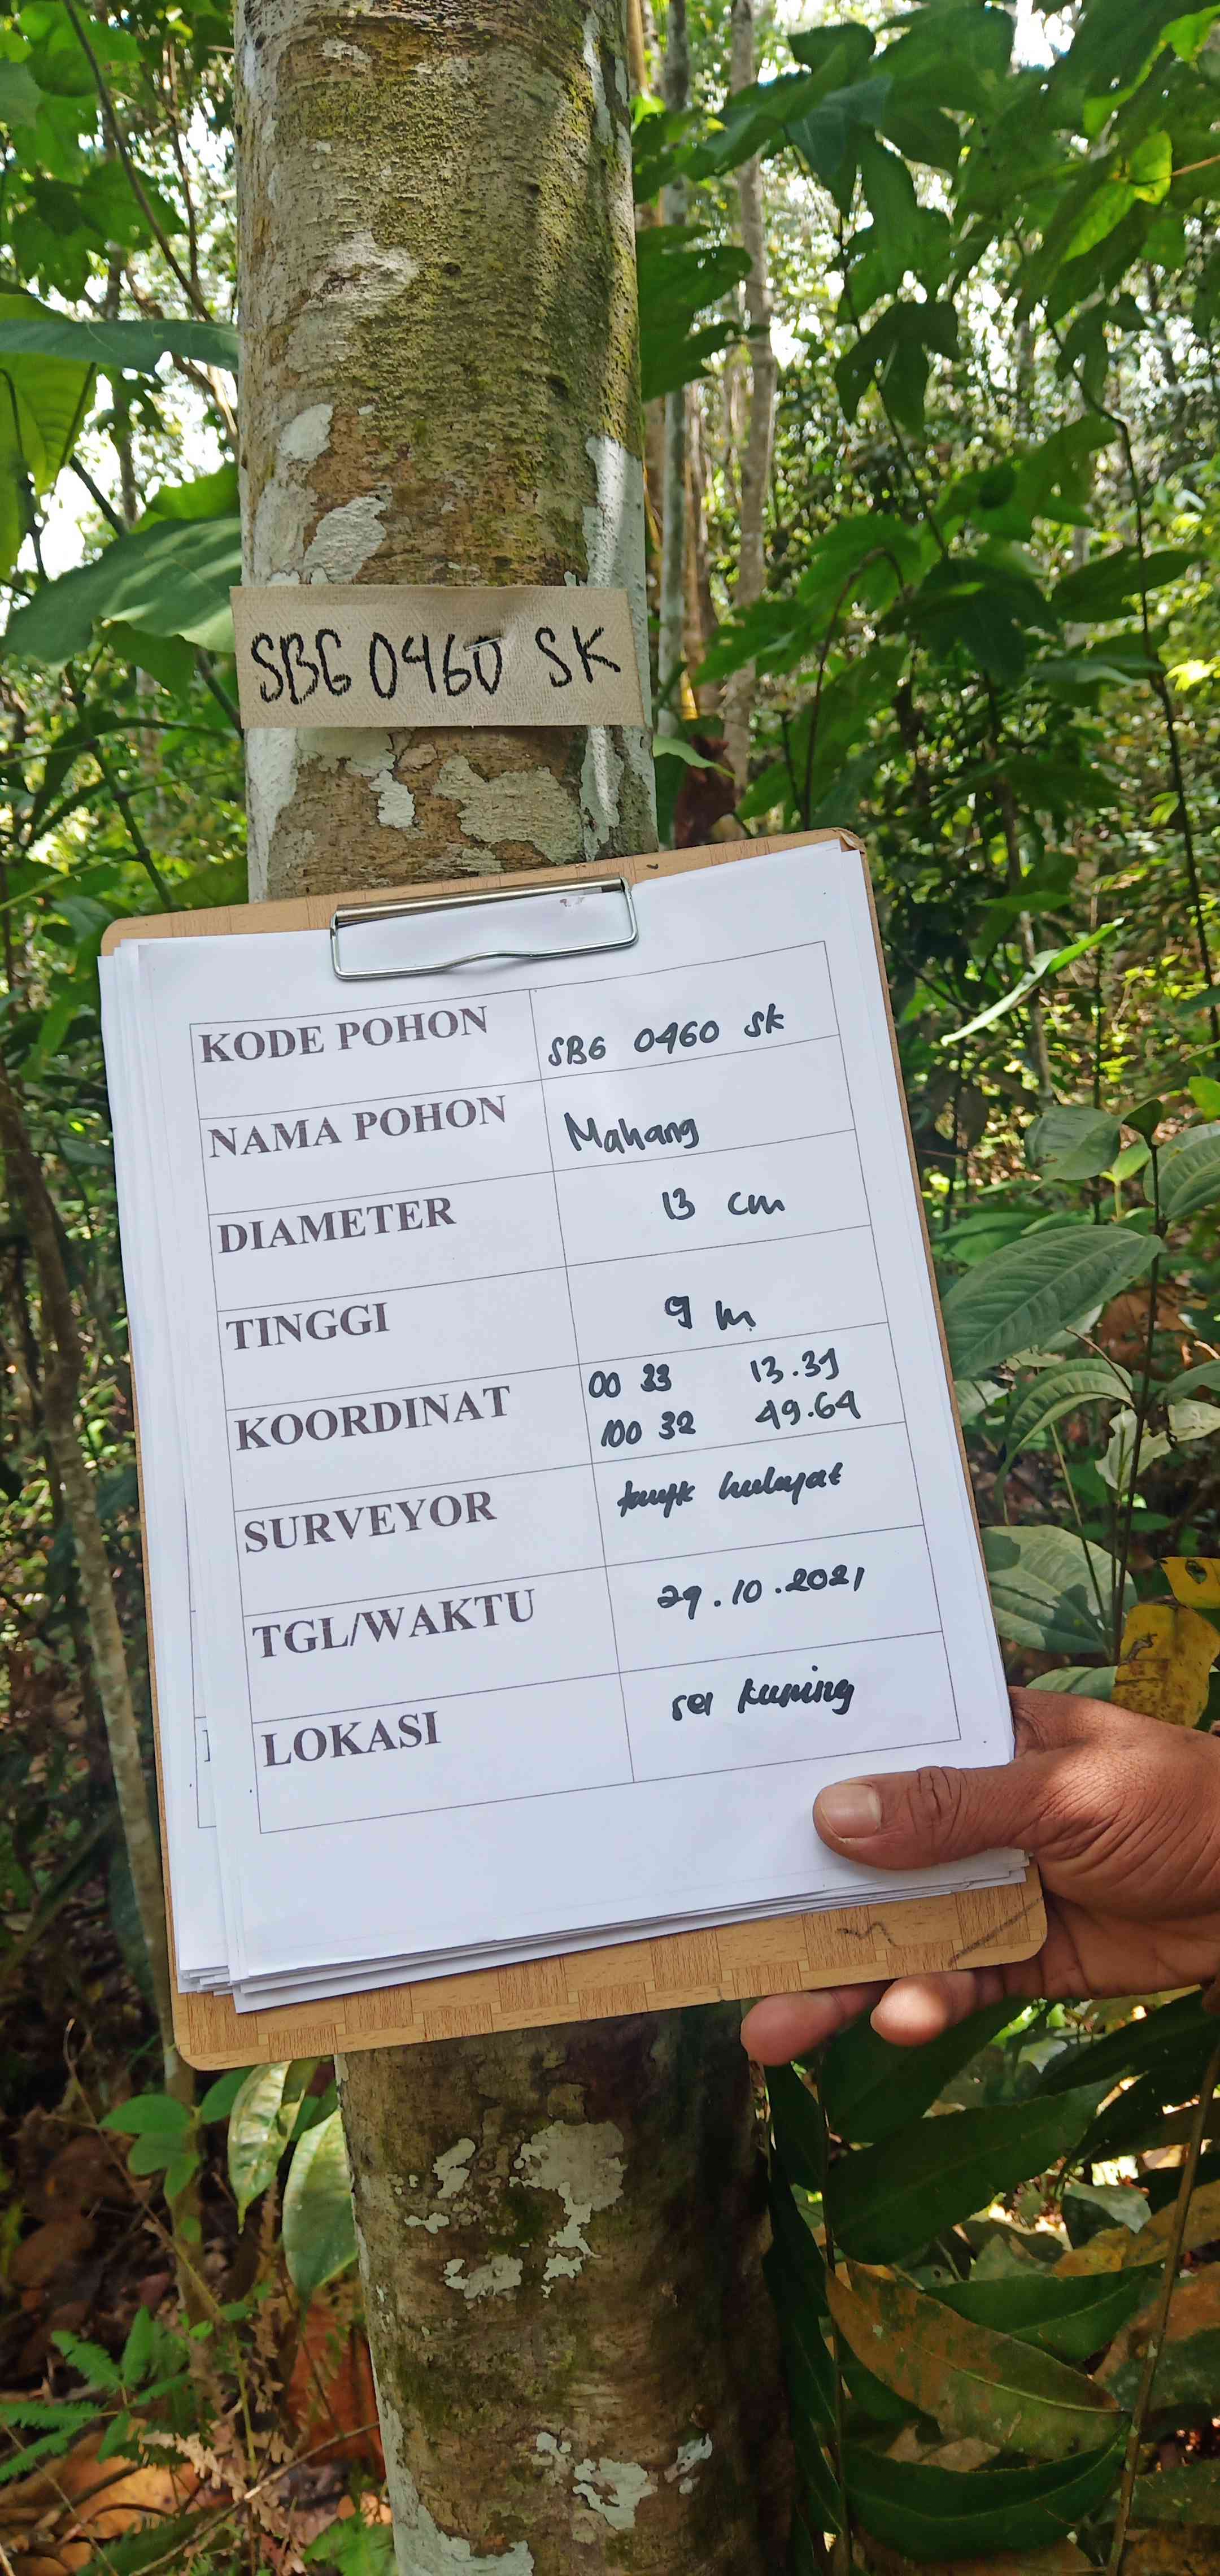 SBG 0460 SK
KODE POHON SBG 0460 SK
NAMA POHON Mahang
DIAMETER 13 cm
TINGGI 9 m
KOORDINAT 00 33 13.39
100 32 49.64
SURVEYOR taufik hidayat
TGL/WAKTU 29.10.2021
LOKASI sei kuning